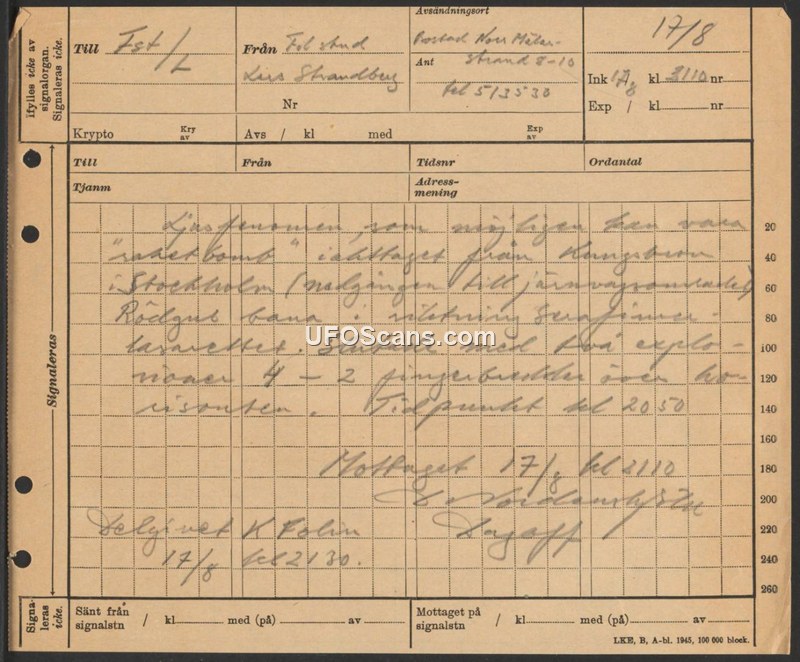 ifylles icke av
signalorgan.
Signaleras icke.
Till Fst/L
Från Fil stud
Lars Strandberg
Nr
Avsändningsort
Bostad Norr Mälar-
Ant strand 8-10
tel 513530
17/8
Ink 17/8 kl 2110 nr
Exp / kl nr
Krypto Kry av
Avs / kl med Exp av
Till Från Tidsnr Ordantal
Tjanm Adress-
mening
Signaleras
Ljusfenomen, som möjligen kan vara 20
"raketbomb" iakttaget från Kungsbron 40
i Stockholm (nedgången till järnvägsområdet) 60
Rödgul bana i riktning Serafimer- 80
lasarettet. med två explo- 100
sioner 4 – 2 fingerbredder över ho- 120
risonten. Tidpunkt kl 2050 140
160
Mottaget 17/8 kl 2110 180
200
Delgivet K Folin Dagoff 220
17/8 kl 2130. 240
260
Signa-
leras
icke.
Sänt från
signalstn / kl med (på) av
Mottaget på
signalstn / kl med (på) av
LKE, B, A-bl. 1945, 100 000 block.
UFOScans.com